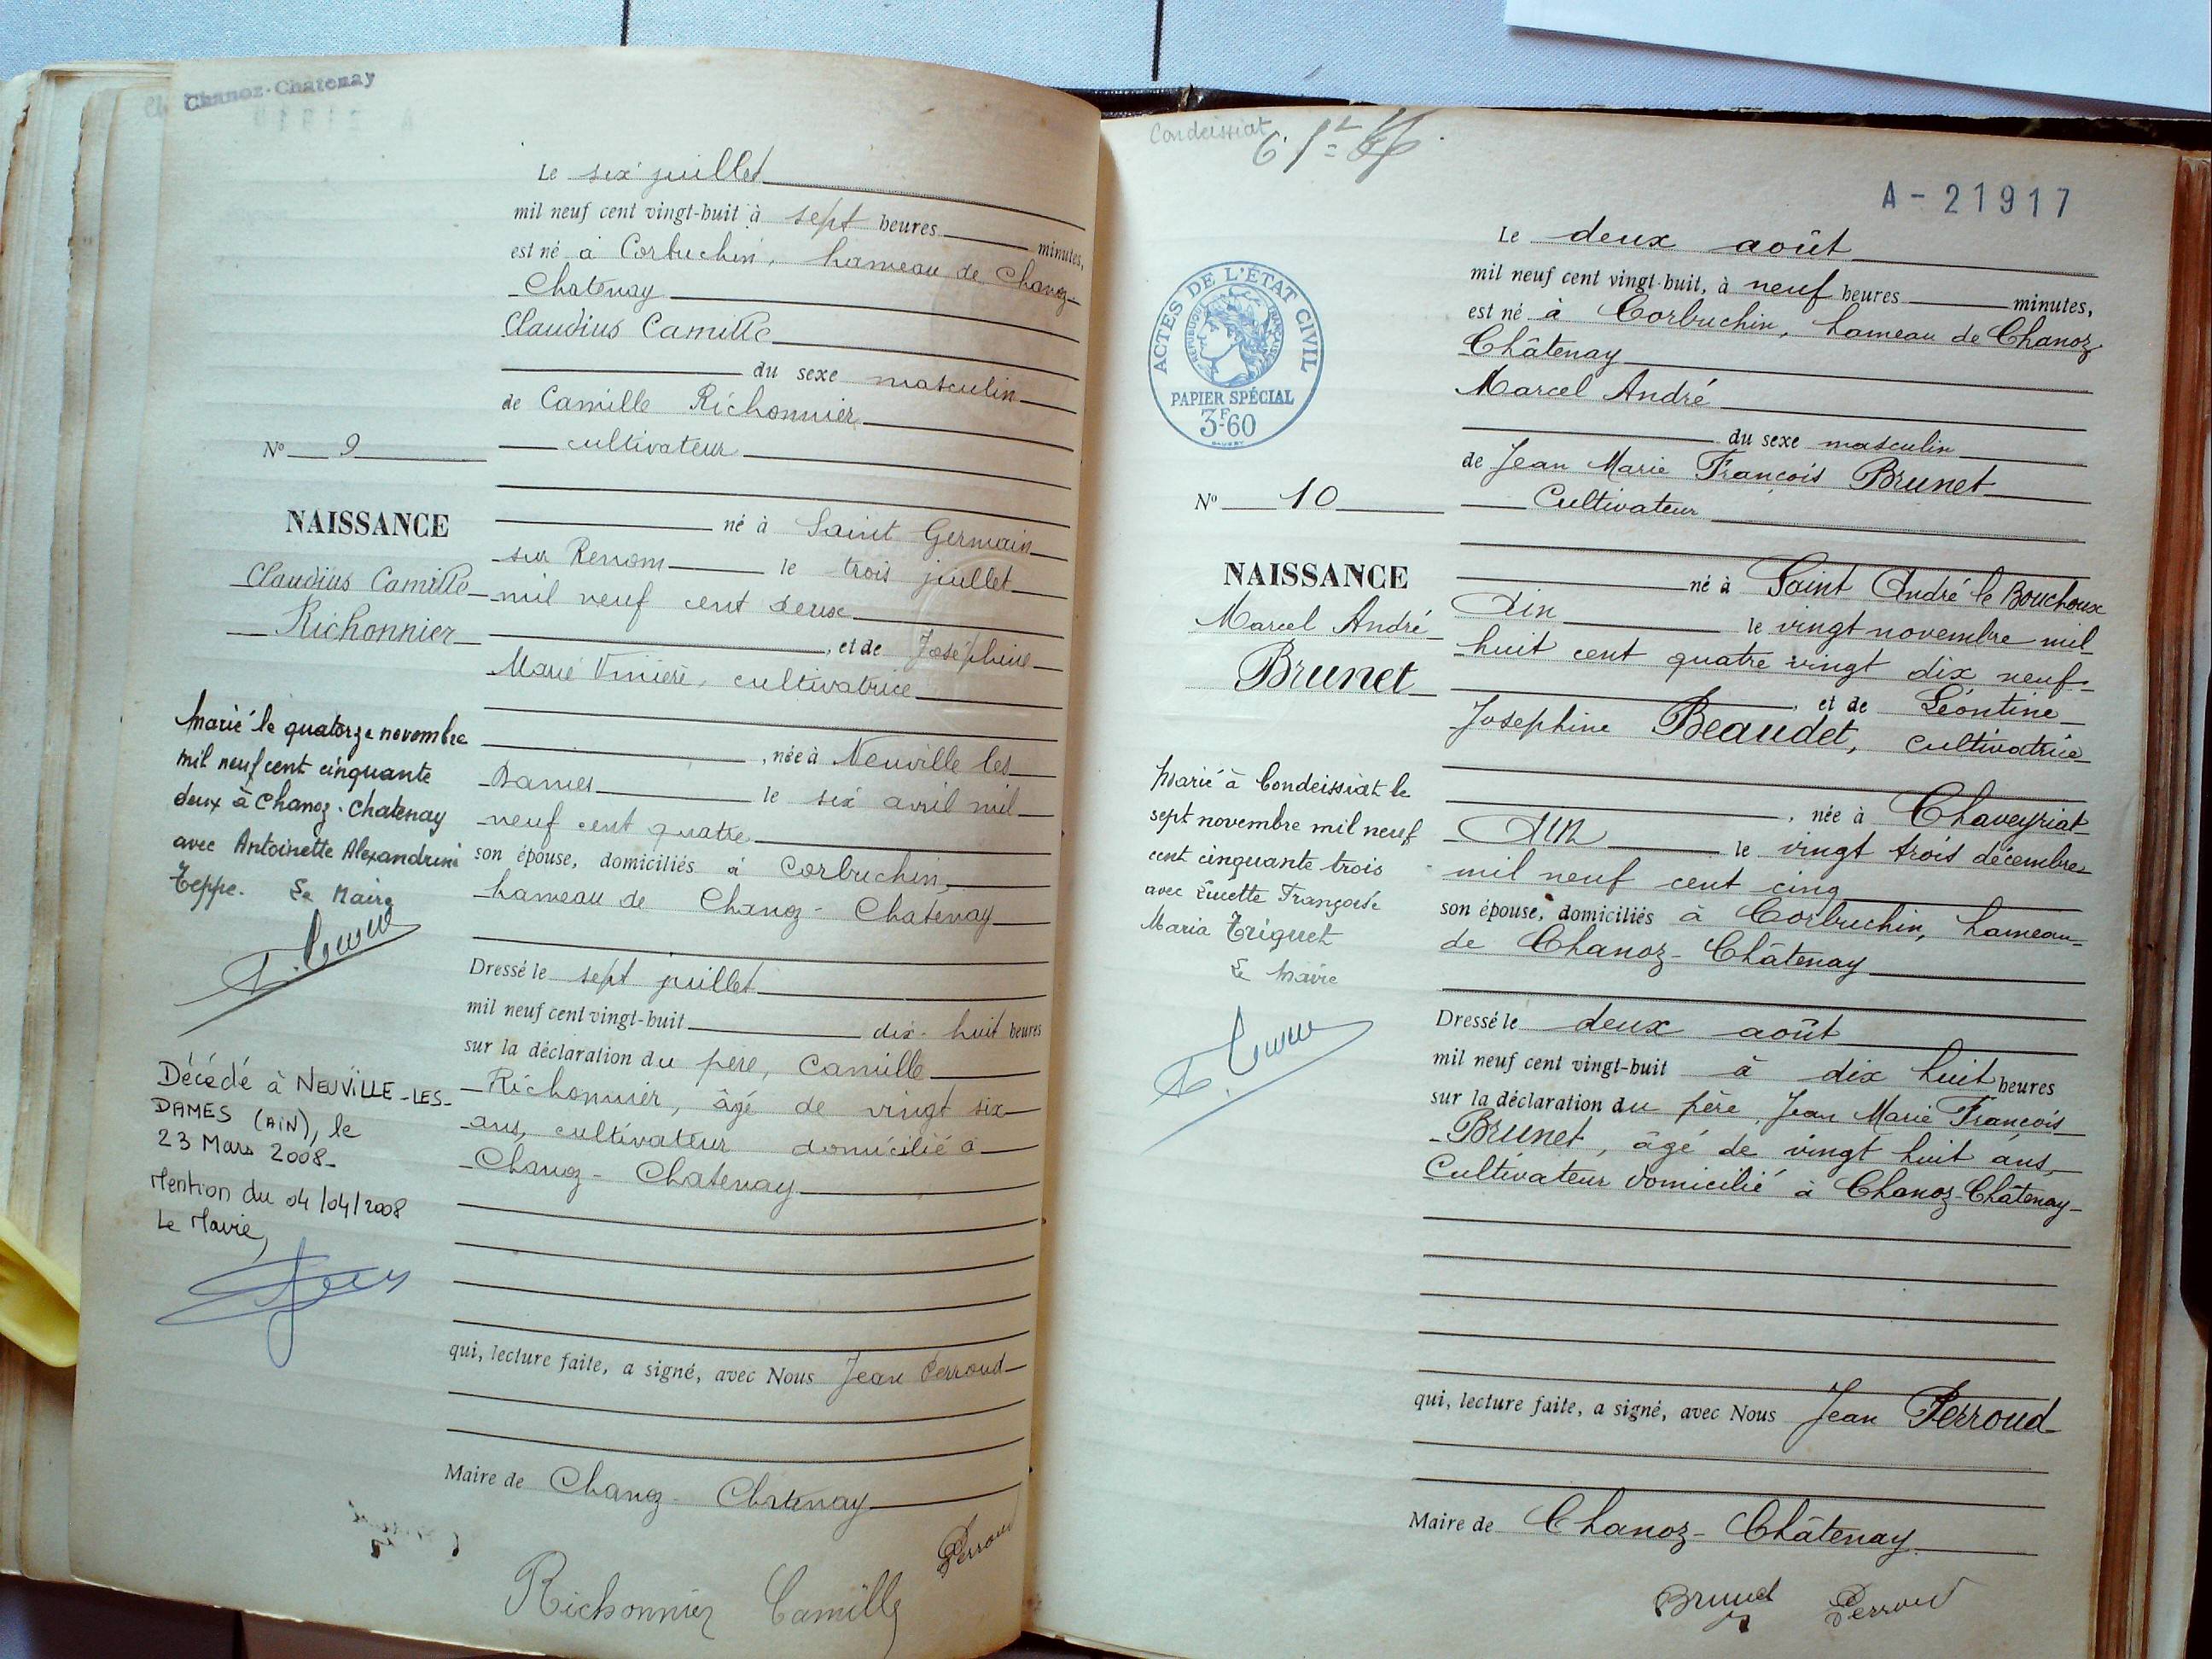 Chanoz-Chatenay
Le six juillet
mil neuf cent vingt-huit à sept heures minutes,
est né à Corbuchin, hameau de Chanoz-
Chatenay
Claudius Camille
du sexe masculin
de Camille Richonnier
cultivateur
né à Saint Germain
sur Renom le trois juillet
mil neuf cent deux
, et de Joséphine
Marie, cultivatrice
, née à Neuville les
Dames le six avril mil
neuf cent quatre
son épouse, domiciliés à Corbuchin,
hameau de Chanoz-Chatenay
Dressé le sept juillet
mil neuf cent vingt-huit dix-huit heures
sur la déclaration du père, Camille
Richonnier, âgé de vingt six
ans, cultivateur domicilié à
Chanoz-Chatenay
qui, lecture faite, a signé, avec Nous Jean Perroud
Maire de Chanoz-Chatenay
Richonnier Camille
Perroud
N° 9
NAISSANCE
Claudius Camille
Richonnier
Marié le quatorze novembre
mil neuf cent cinquante
deux à Chanoz-Chatenay
avec Antoinette Alexandrine
Teppe. Le Maire
Décédé à NEUVILLE-LES-
DAMES (AIN), le
23 Mars 2008-
Mention du 04/04/2008
Le Maire,
Condeissiat
A-21917
ACTES DE L'ÉTAT CIVIL
RÉPUBLIQUE FRANÇAISE
PAPIER SPÉCIAL
3F60
Le deux août
mil neuf cent vingt-huit, à neuf heures minutes,
est né à Corbuchin, hameau de Chanoz
Châtenay
Marcel André
du sexe masculin
de Jean Marie François Brunet
Cultivateur
né à Saint André le Bouchoux
Ain le vingt novembre mil
huit cent quatre vingt dix neuf-
, et de Léontine
Josephine Beaudet, cultivatrice
, née à Chaveyriat
Ain le vingt trois décembre
mil neuf cent cinq
son épouse, domiciliés à Corbuchin, hameau
de Chanoz-Châtenay
Dressé le deux août
mil neuf cent vingt-huit à dix huit heures
sur la déclaration du père, Jean Marie François
Brunet, âgé de vingt huit ans,
Cultivateur domicilié à Chanoz-Châtenay
qui, lecture faite, a signé, avec Nous Jean Perroud
Maire de Chanoz-Châtenay
Brunet Perroud
N° 10
NAISSANCE
Marcel André
Brunet
Marié à Condeissiat le
sept novembre mil neuf
cent cinquante trois
avec Lucette Françoise
Maria Triquet
Le Maire